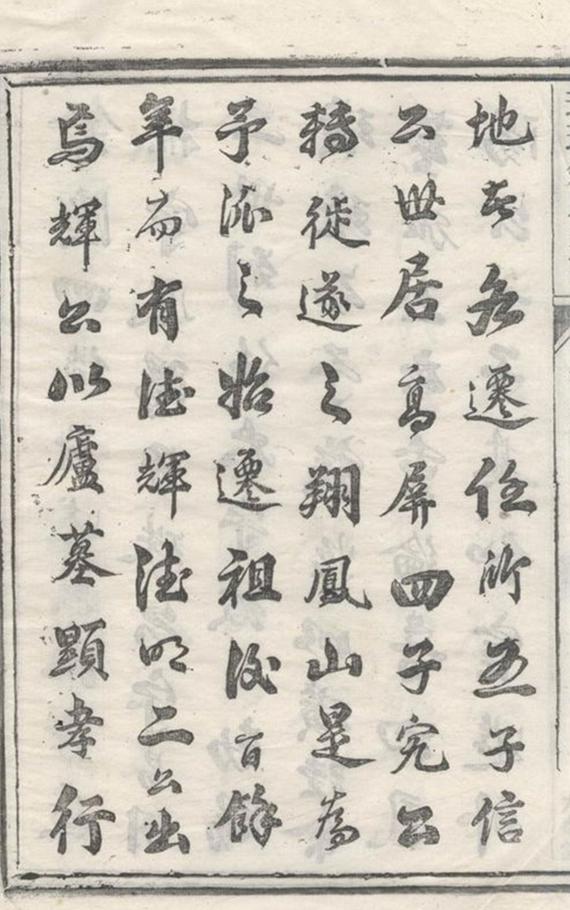 地者各遷任所五子信
公世居高屏四子完公
轉徙遂之翔鳳山是為
予派之始遷祖後百餘
年而有德輝德明二公出
焉輝公以廬墓顯孝行